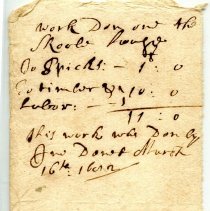 work Don one the
Skoole house
To Bricks — 1 : 0
To timber & 10 : 0
Labor : —
11 : 0
this work was Don by
March
16th